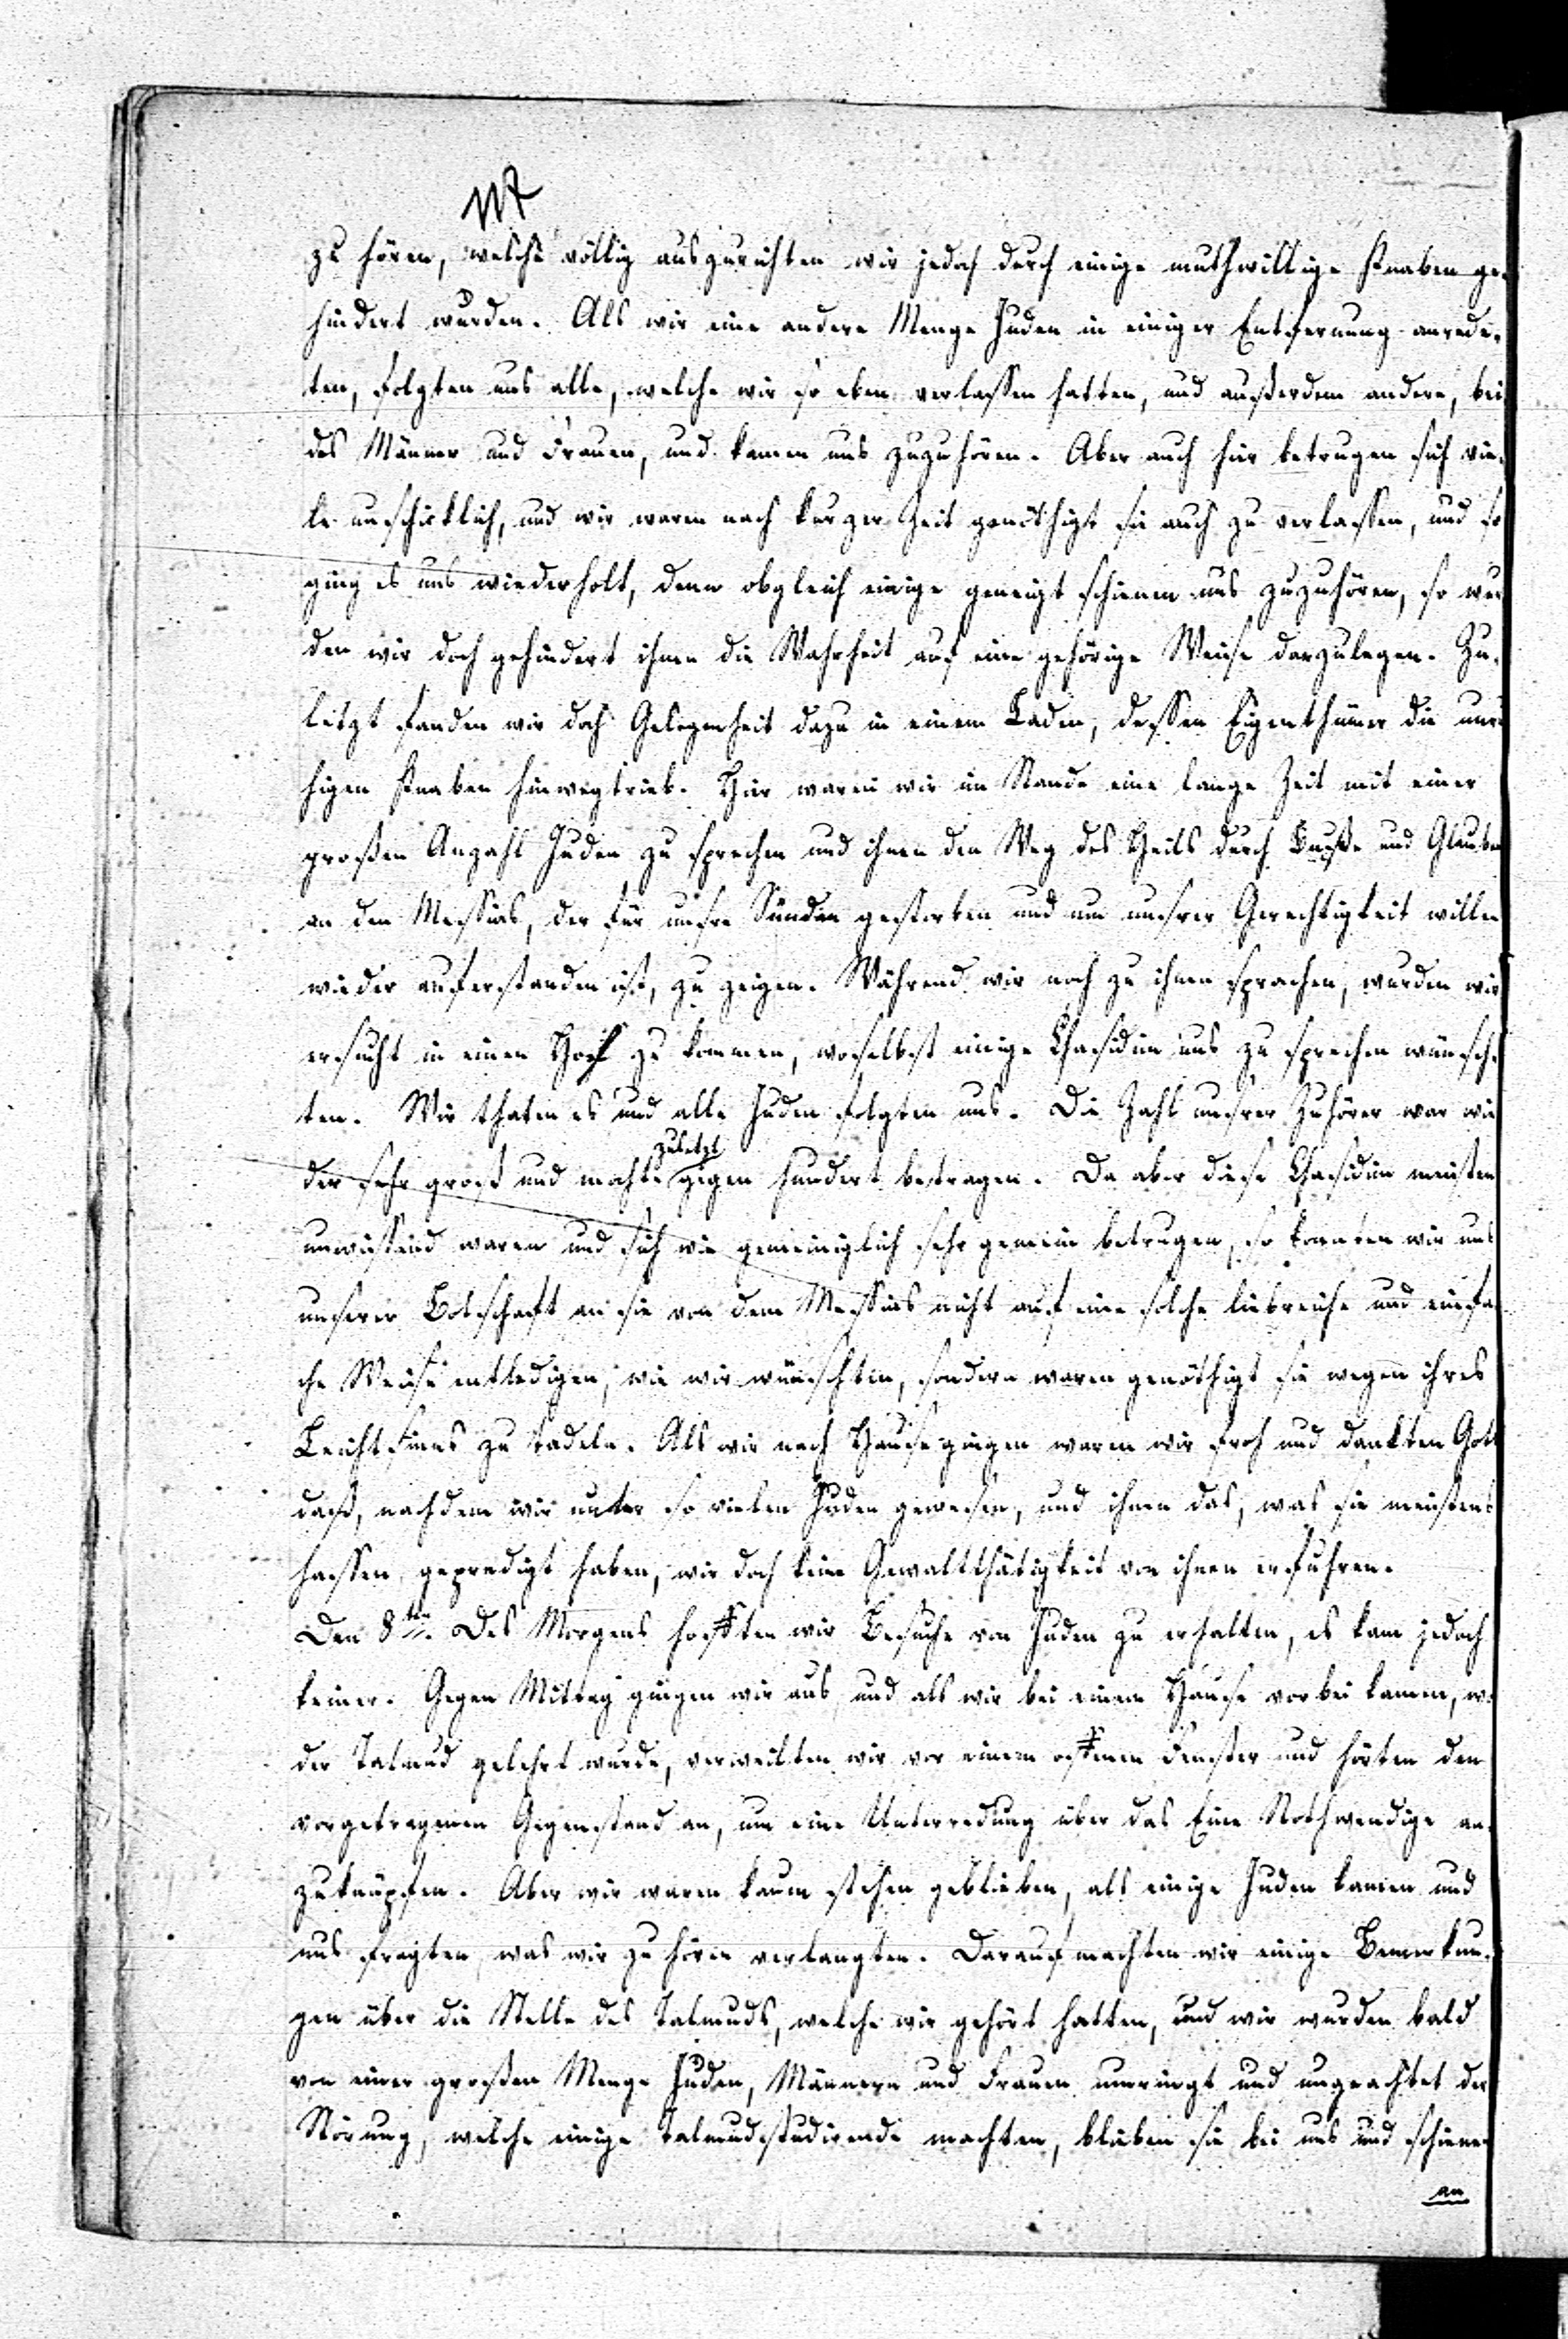 117
zu hören, welche völlig auszurichten wir jedoch durch einige muthwillige Knaben ge-
hindert wurden. Als wir eine andere Menge Juden in einiger Entfernung anrede-
ten, folgten uns alle, welche wir so eben verlassen hatten, und außerdem andere, bei-
des Männer und Frauen, und kamen uns zuzuhören. Aber auch hier betrugen sich vie-
le unschicklich, und wir waren nach kurzer Zeit genöthigt sie auch zu verlassen, und so
ging es uns wiederholt, denn obgleich einige geneigt schienen uns zuzuhören, so wur
den wir doch gehindert ihnen die Wahrheit auf eine gehörige Weise darzulegen. Zu-
letzt fanden wir doch Gelegenheit dazu in einem Laden, dessen Eigenthümer die unru
higen Knaben hinwegtrieb. Hier waren wir im Stande eine lange Zeit mit einer
großen Anzahl Juden zu sprechen und ihnen den Weg des Heils durch Buße und Glauben
an den Messias, der für unsre Sünden gestorben und um unsrer Gerechtigkeit willen
wieder auferstanden ist, zu zeigen. Während wir noch zu ihnen sprachen, wurden wir
ersucht in einen Hof zu kommen, woselbst einige Chasidim uns zu sprechen wünsch-
ten. Wir thaten es und alle Juden folgten uns. Die Zahl unsrer Zuhörer war wie
der sehr groß und mochte zuletzt gegen hundert betragen. Da aber diese Chasidim meistens
unwissend waren und sich wie gemeiniglich sehr gemein betrugen, so konnten wir uns
unserer Botschaft an sie von dem Messias nicht auf eine solche liebreiche und einfa
che Weise entledigen, wie wir wünschten, sondern waren genöthigt sie wegen ihres
Leichtsinns zu tadeln. Als wir nach Hause gingen waren wir froh und dankten Gott
daß, nachdem wir unter so vielen Juden gewesen, und ihnen das, was sie meistens
hassen, gepredigt haben, wir doch keine Gewaltthätigkeit von ihnen erfuhren.
Den 8ten. Des Morgens hofften wir Besuche von Juden zu erhalten, es kam jedoch
keiner. Gegen Mittag gingen wir aus und als wir bei einem Hause vorbei kamen, wo
der Talmud gelehrt wurde, verweilten wir vor einem offenen Fenster und hörten den
vorgetragenen Gegenstand an, um eine Unterredung über das Eine Nothwendige an-
zuknüpfen. Aber wir waren kaum stehen geblieben, als einige Juden kamen und
uns fragten, was wir zu hören verlangten. Darauf machten wir einige Bemerkun-
gen über die Stelle des Talmuds, welche wir gehört hatten, und wir wurden bald
von einer großen Menge Juden, Männern und Frauen umringt und ungeachtet der
Störung, welche einige Talmudstudirende machten, blieben sie bei uns und schienen
an